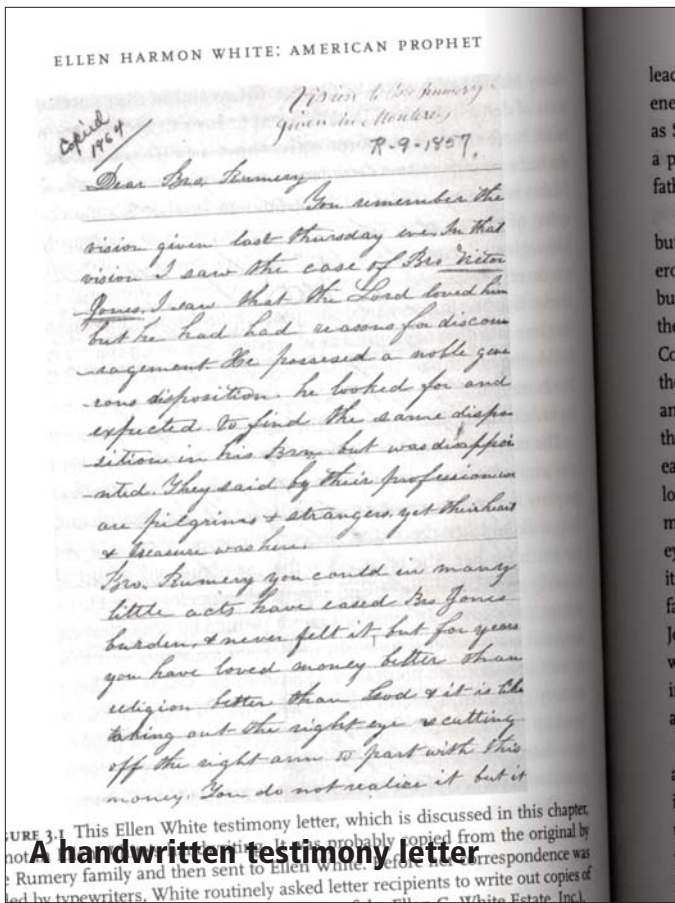 ELLEN HARMON WHITE: AMERICAN PROPHET
Copied
1964
Vision to Bro Rumery.
given in Monterey
R-9-1857.
Dear Bro. Rumery
You remember the
vision given last thursday eve. In that
vision I saw the case of Bro Victor
Jones. I saw that the Lord loved him
but he had had reasons for discou
-ragement. He possesed a noble gene
-rous disposition. he looked for and
expected to find the same dispo
sition in his Brn. but was disappoi
-nted. They said by their profession we
are pilgrims & strangers, yet their heart
& treasure was here.
Bro. Rumery you could in many
little acts have eased Bro Jones
burden, & never felt it, but for years
you have loved money better than
religion better than God & it is like
taking out the right eye & cutting
off the right arm to part with this
money. You do not realize it but it
URE 3.1 This Ellen White testimony letter, which is discussed in this chapter,
not probably copied from the original by
A handwritten testimony letter
e Rumery family and then sent to Ellen White. Before her correspondence was
led by typewriters, White routinely asked letter recipients to write out copies of
Ellen G. White Estate, Inc.).
lead
ene
as S
a p
fath
but
ero
bu
the
Co
the
an
th
ea
lo
m
ey
it
fa
Je
w
i
a